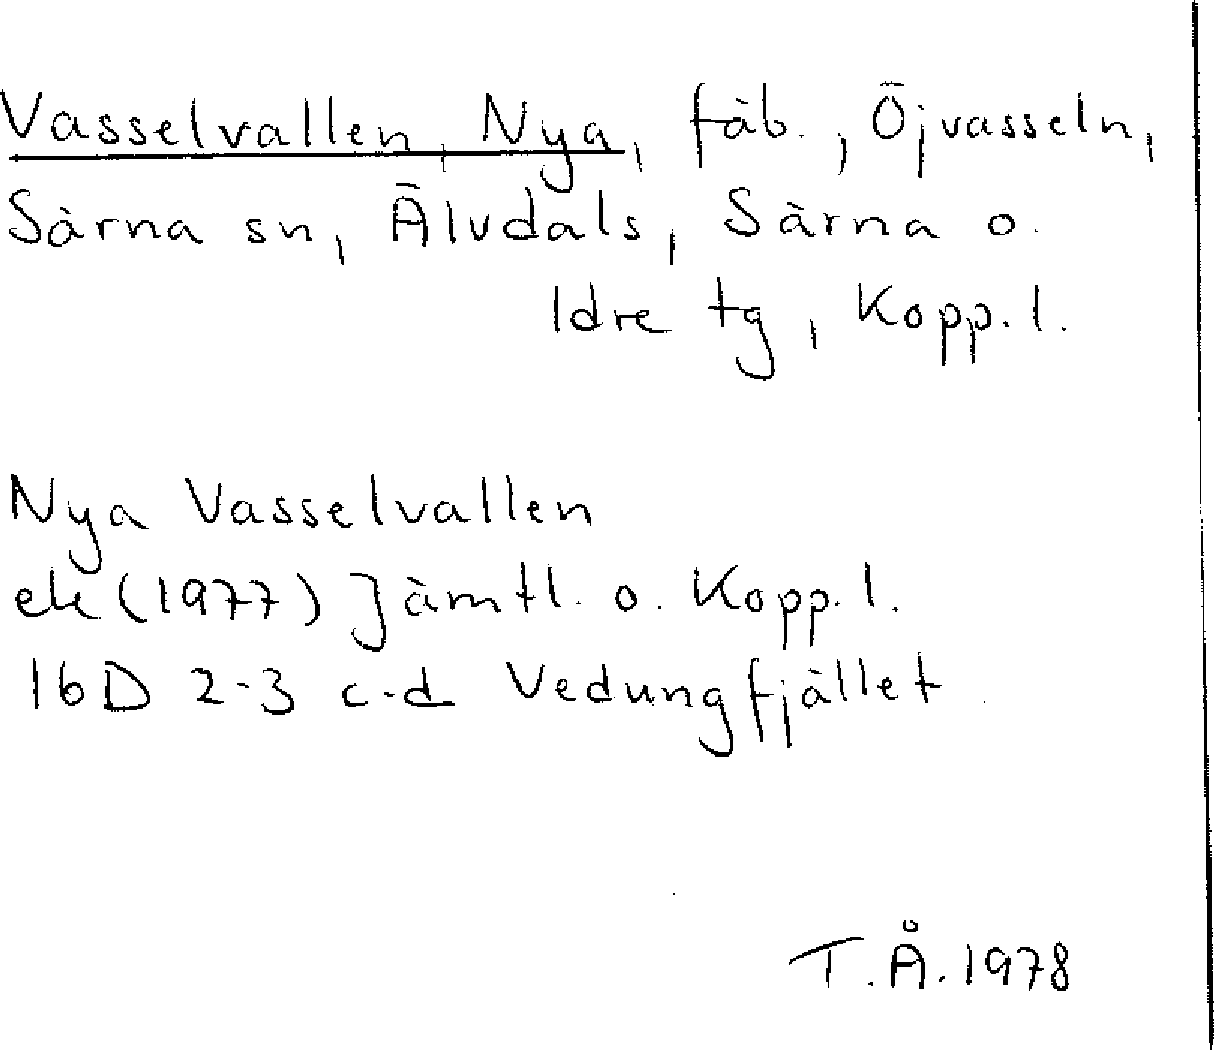 Vasselvallen, Nya, fäb., Öjvasseln,
Särna sn, Älvdals, Särna o.
Idre tg, Kopp. l.
Nya Vasselvallen
ek (1977) Jämtl. o. Kopp. l.
16D 2-3 c-d Vedungfjället
T.Å. 1978